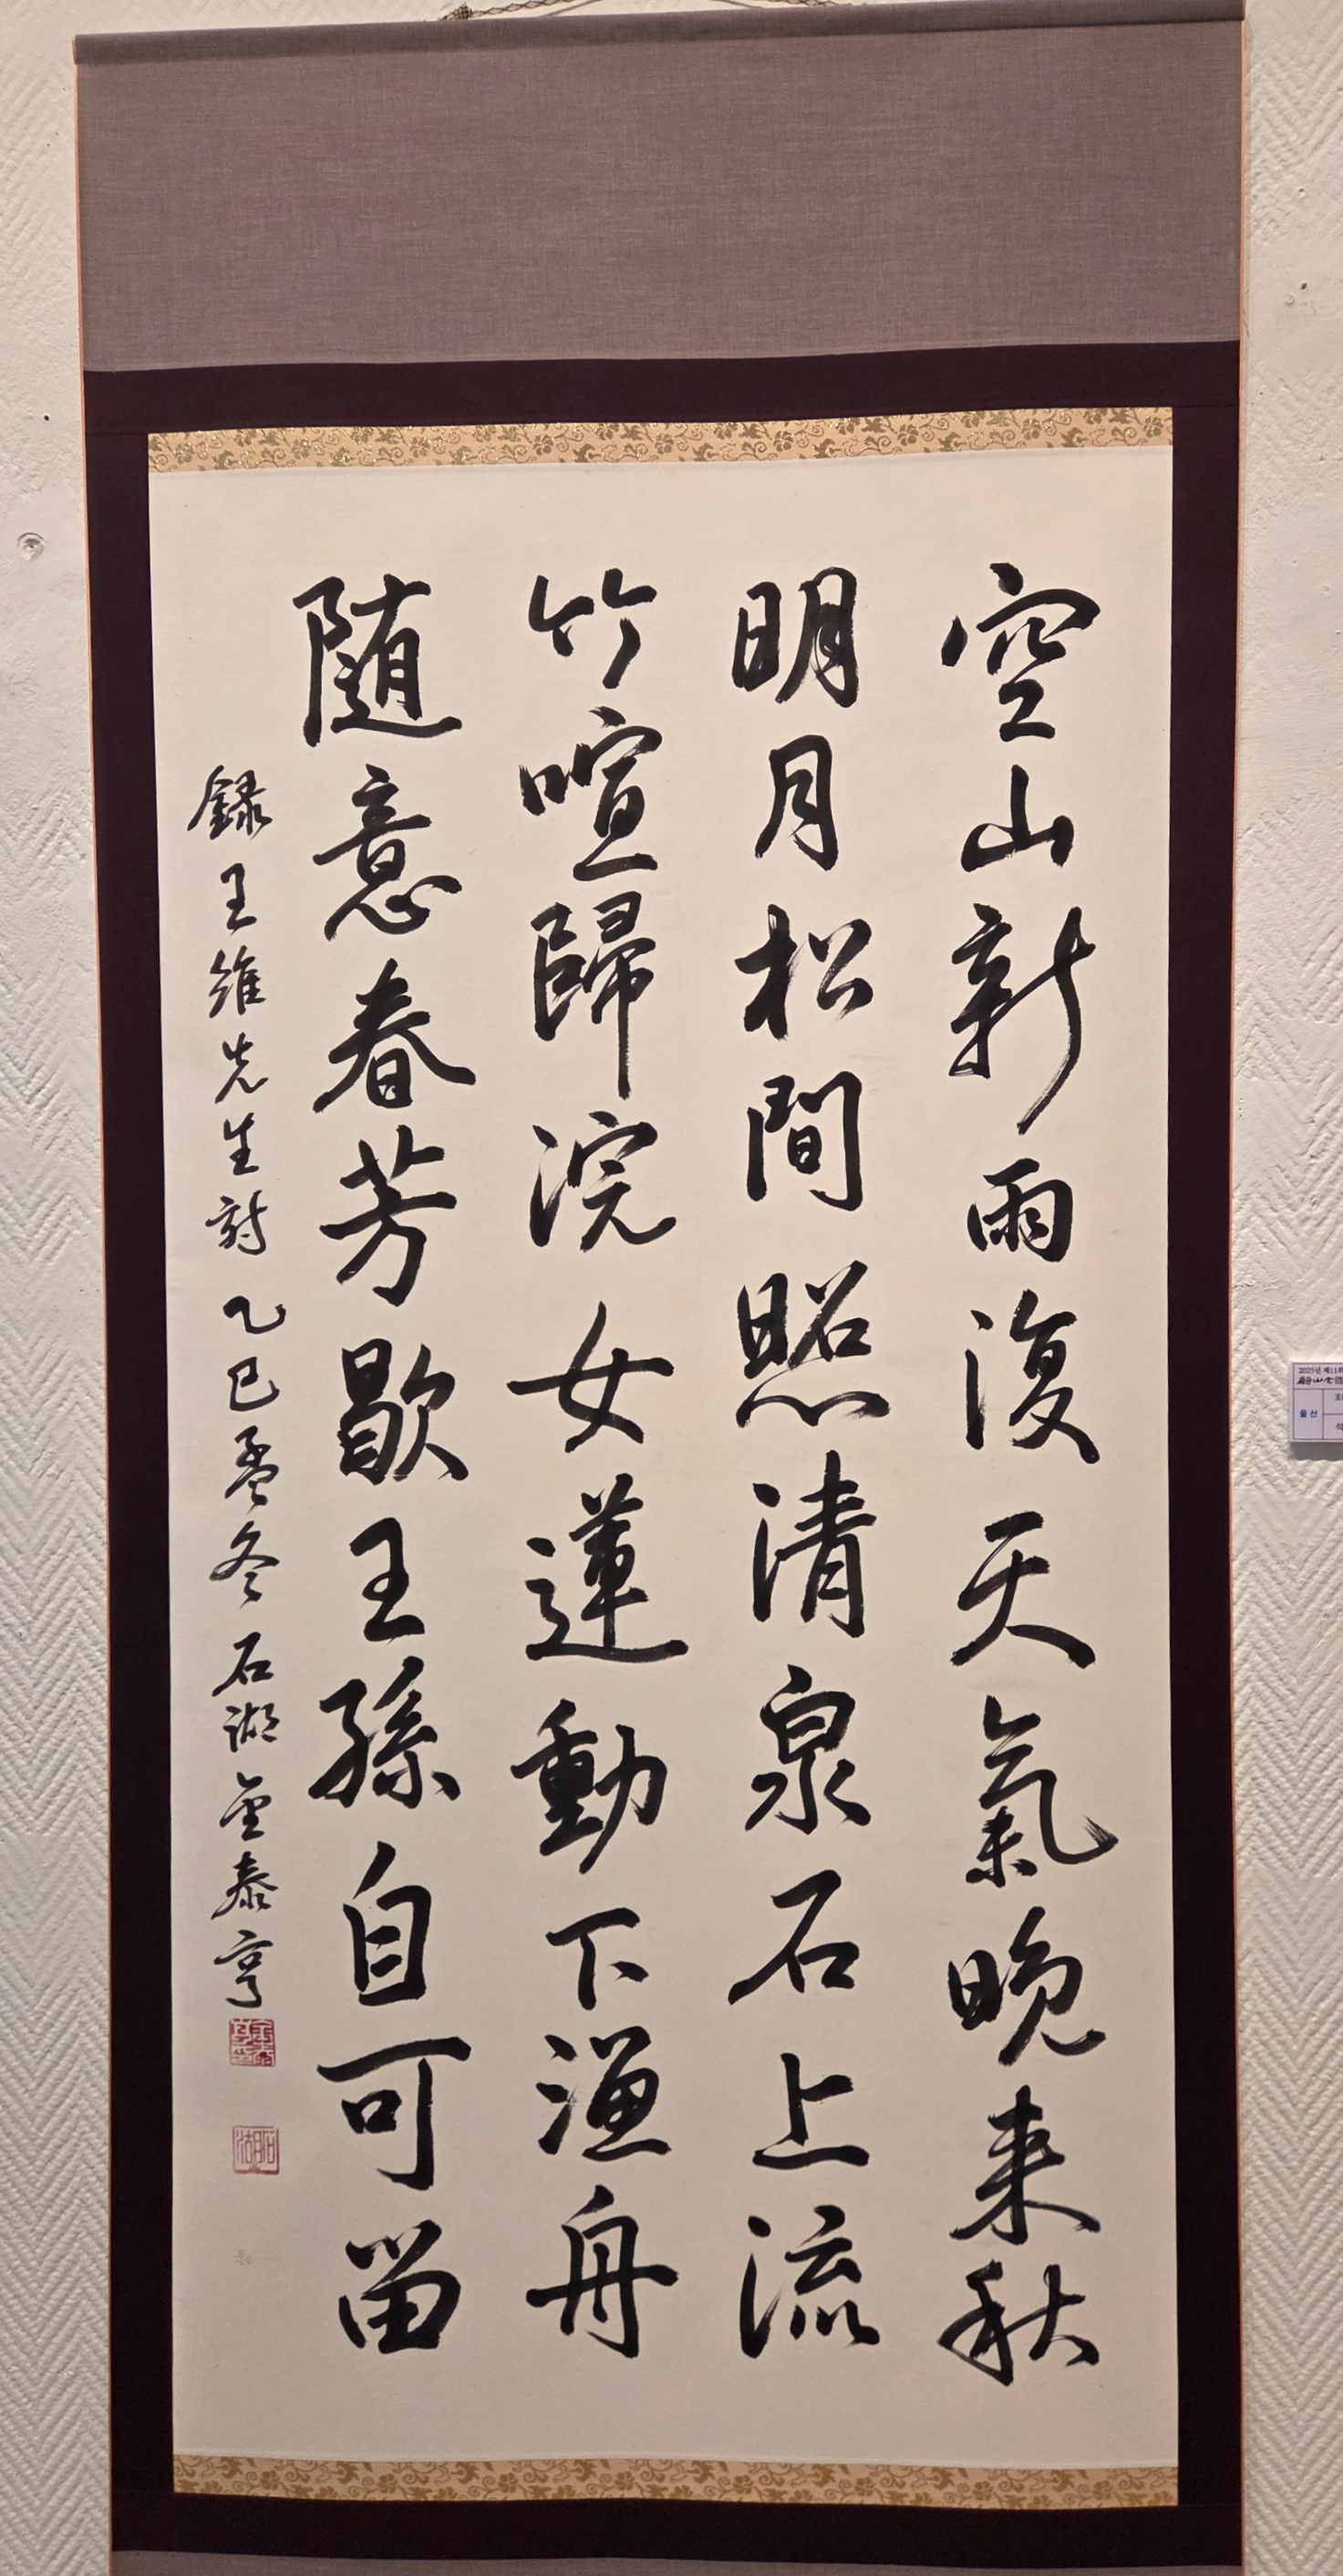 空山新雨復天氣晩来秋
明月松間照清泉石上流
竹喧歸浣女蓮動下漁舟
随意春芳歇王孫自可留
録王維先生詩 乙巳孟冬 石湖 金泰亨
石湖
2025년 제11회
울산